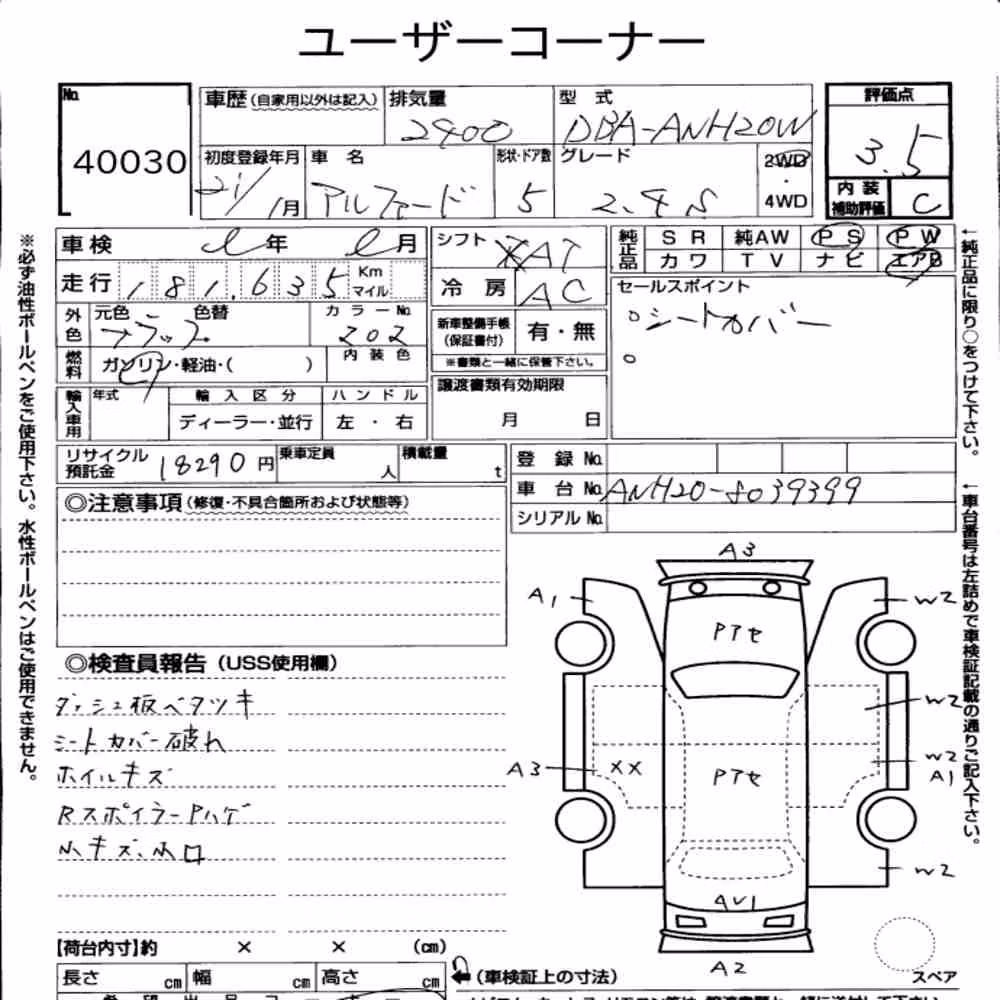 ユーザーコーナー
No. 40030
車歴(自家用以外は記入) 排気量 2400 型式 DBA-ANH20W 評価点 3.5
初度登録年月 21/1月 車名 アルファード 形状・ドア数 5 グレード 2.4 S 2WD・4WD 内装補助評価 C
車検 年 月 シフト AT 純正品 SR 純AW PS PW
カワ TV ナビ エアB
走行 181,635 Km マイル 冷房 AC セールスポイント
○シートカバー
○
外色 元色 ブラック 色替 カラーNo. 202 新車整備手帳(保証書付) 有・無
※書類と一緒に保管下さい。
燃料 ガソリン・軽油・( ) 内装色
譲渡書類有効期限 月 日
輸入車用 年式 輸入区分 ディーラー・並行 ハンドル 左・右
リサイクル預託金 18290円 乗車定員 人 積載量 t
登録No.
車台No. ANH20-8039399
シリアルNo.
◎注意事項(修復・不具合箇所および状態等)
◎検査員報告(USS使用欄)
ダッシュ板ベタツキ
シートカバー破れ
ホイルキズ
RスポイラーPハゲ
小キズ、小凹
A3
A1 W2
Pアセ
W2
A3 XX Pアセ W2
A1
W2
AU1
A2
スペア
【荷台内寸】約 × × (cm)
長さ cm 幅 cm 高さ cm
(車検証上の寸法)
※必ず油性ボールペンをご使用下さい。水性ボールペンはご使用できません。
←純正品に限り○をつけて下さい。
←車台番号は左詰めで車検証記載の通りご記入下さい。